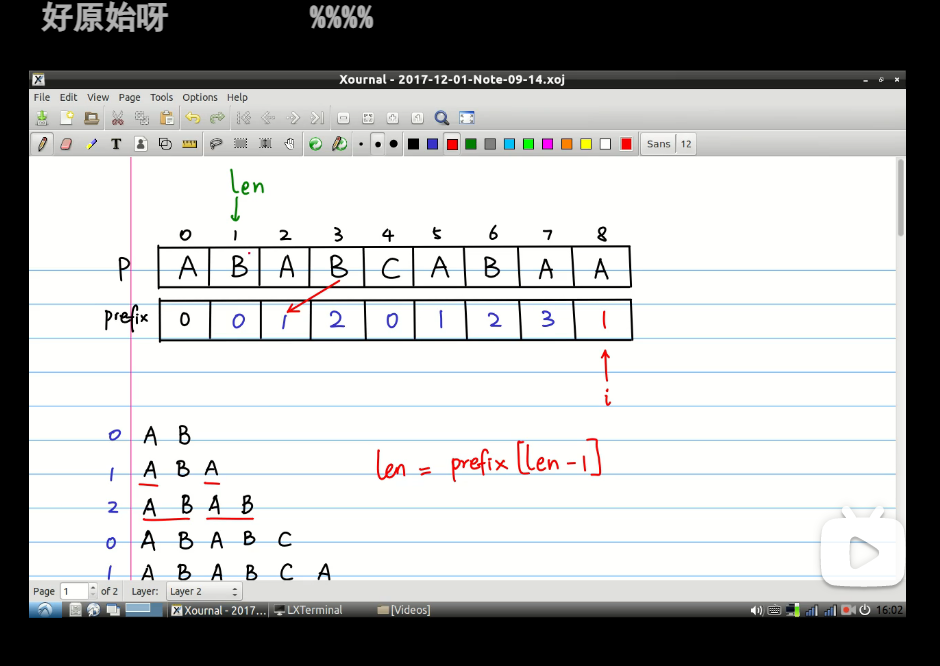 好原始呀 %%%%
Xournal - 2017-12-01-Note-09-14.xoj
File Edit View Page Tools Options Help
T Sans 12
len
0 1 2 3 4 5 6 7 8
P A B A B C A B A A
prefix 0 0 1 2 0 1 2 3 1
i
0 A B
1 A B A
len = prefix[len-1]
2 A B A B
0 A B A B C
1 A B A B C A
Page 1 of 2 Layer: Layer 2
Xournal - 2017... LXTerminal [Videos] 16:02